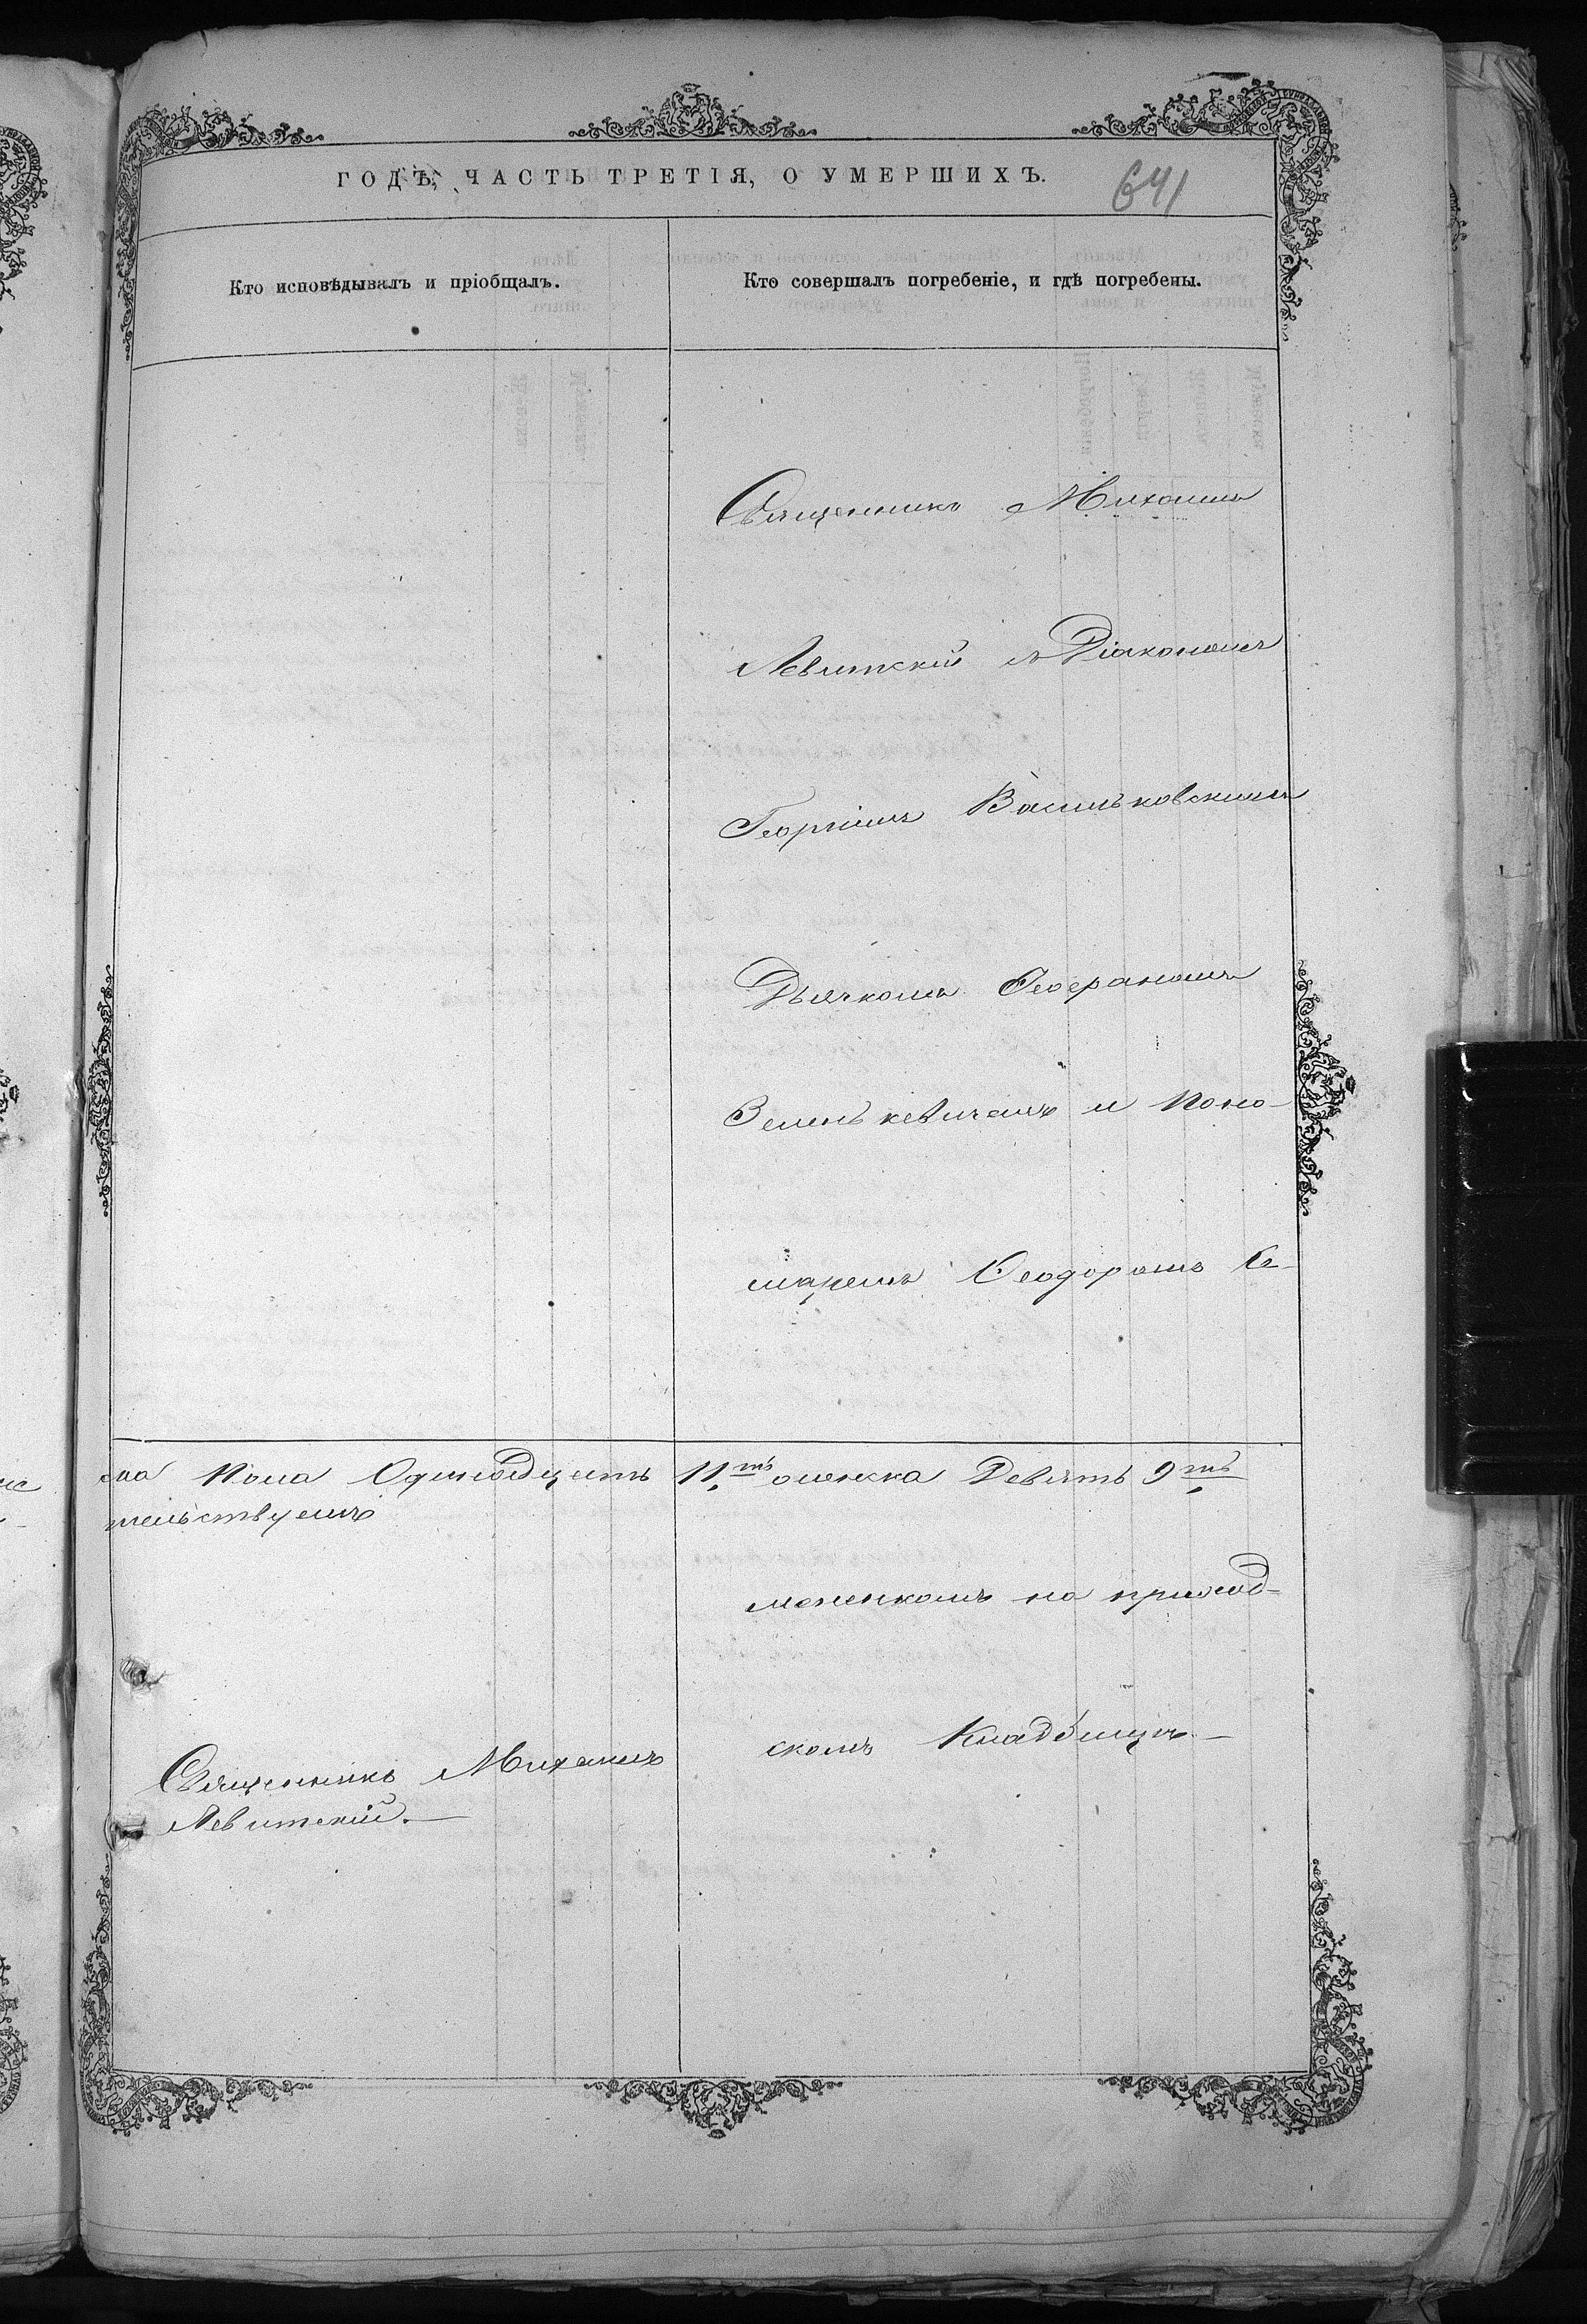 ГОДѢ, ЧАСТЬ ТРЕТІЯ, О УМЕРШИХЪ.
641
Кто исповѣдывалъ и пріобщалъ.
Кто совершалъ погребеніе, и гдѣ погребены.
Священникъ Михаилъ
Левитскій съ Діакономъ
Георгіемъ Васильковскимъ
Дьячкомъ
Зенькевичемъ и Поно-
маремъ Ѳеодоромъ Се-
Пола Одинадцать 11.ть женска Девять 9.ть
тельствуемъ
мененкомъ на приход-
скомъ Кладбищѣ –
Священникъ Михаилъ
Левитскій. –